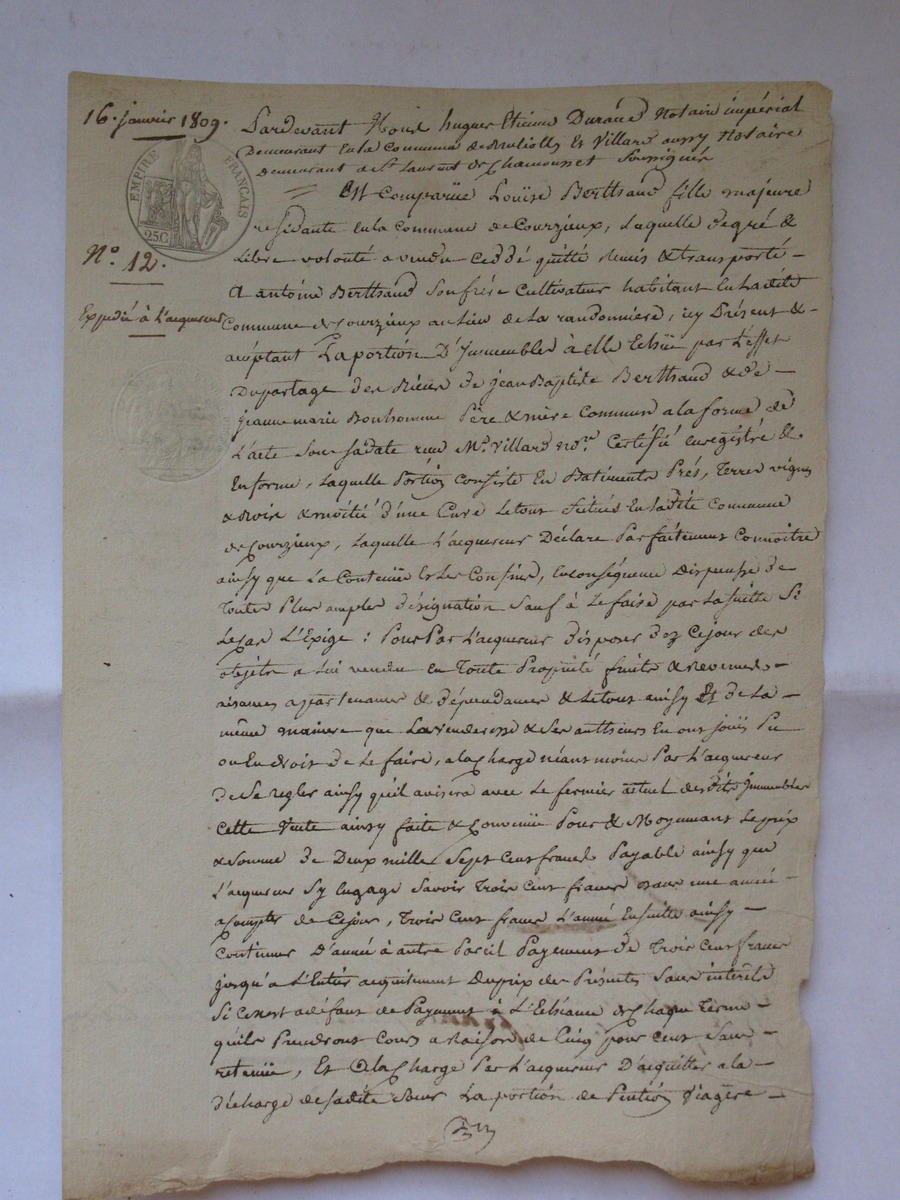 16. janvier 1809.
EMPIRE FRANÇAIS
25C
N.° 12.
Expedié à L'acquereur
Pardevant Nous hugues Etienne Durand Notaire impérial
Demeurant en la Commune de Et Villard aussy Notaire
demeurant a St. Laurent de Chamousset soussignés
Est Comparüe Loüise Berthaud fille majeure
residante en la Commune de Courzieux, Laquelle de gré &
Libre volonté a vendu ceddé quitté remis & transporté –
A antoine Berthaud son frére cultivateur habitant en Ladite
Commune de Courzieux au Lieu de La randonniere, icy Présent & –
acéptant La portion D'Immeubles à elle Echüe par L'effet
Du partage des Biens de jean Baptiste Berthaud & de –
jeanne marie Bonhomme Père & mère commun a la forme de
L'acte sous sa date reçu Me. Villard nore. Certifié enregistré &
En forme, Laquelle Portion consiste En Batiments Prés, Terres vignes
& Bois & moitié d'une Cuve Le tout situés En Ladite Commune
de Courzieux, Laquelle L'acquereur Déclare Parfaitement Connoitre
ainsy que La Contenüe Et Les Confins, En conséquence Dispense de
Toutes Plus amples désignation sauf à Le faire par La suitte Si
Le cas L'Exige : Pour Par L'acquereur disposer dez ce jour des
objets a Lui vendu en Toute Propriété fruits & revenus –
aisances appartenances & dépendances & Le tout ainsy Et de La –
même maniere que La venderesse & ses autheurs En ont joüi Pu
ou En droit de Le faire, a la Charge néant moins Par L'acquereur
de se regler ainsy qu'il avisera avec Le fermier actuel des dits Immeubles
Cette Vente ainsy faite & Convenüe Pour & Moyennant Le prix
& somme de Deux mille Sept Cent francs Payable ainsy que
L'acquereur s'y Engage Savoir Trois Cent francs dans une année
a compter de ce jour, Trois Cent francs L'année Ensuitte ainsy –
Continuer D'année à autre Pareil Payement de Trois Cent francs
jusqu'a L'Entier acquitement Du prix des Présentes Sans intérêts
Si Ce n'est a défaut de Payement à L'Echéance de Chaque Terme
qu'ils Prendront Cours a Raison de Cinq pour cent Sans –
retenüe, Et à la Charge Par L'acquereur D'acquitter a la –
décharge de sadite Sœur La portion de Pention Viagère –